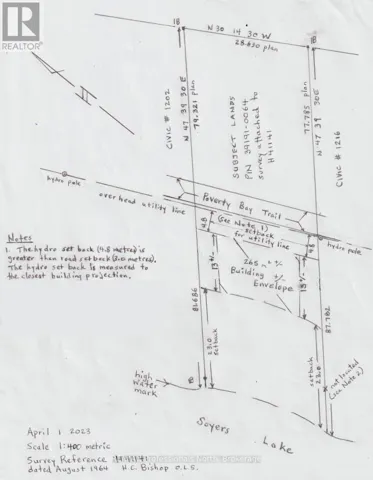 REALTOR®
IB
IB
N 30 14 30 W
28.650 plan
CIVIC # 1202
79.221 plan
N 47 39 30 E
SUBJECT LANDS
PIN 39191-0064
survey attached to
H41141
77.785 plan
N 47 39 30 E
CIVIC # 1216
hydro pole
overhead utility line
Poverty Bay Trail
(See Note 1)
setback
for utility line
4.8
4.8
hydro pole
Notes
1. The hydro set back (4.8 metres) is
greater than road set back
The hydro set back is measured to
the closest building projection.
13 +/-
265 m² +/-
Building
Envelope
13 +/-
81.686
23.0
setback
87.782
setback
23.0
not located
(see Note 2)
high
water
mark
Soyers Lake
April 1 2023
Scale 1:400 metric
Survey Reference
dated August 1964 H.C. Bishop O.L.S.